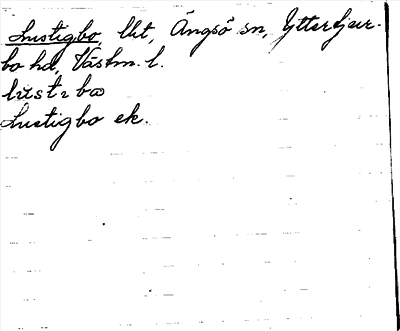 Lustigbo, lht, Ängsö sn, Yttertjur-
bo hd, Västm. l.
lŭstɩ bω
Lustigbo ek.